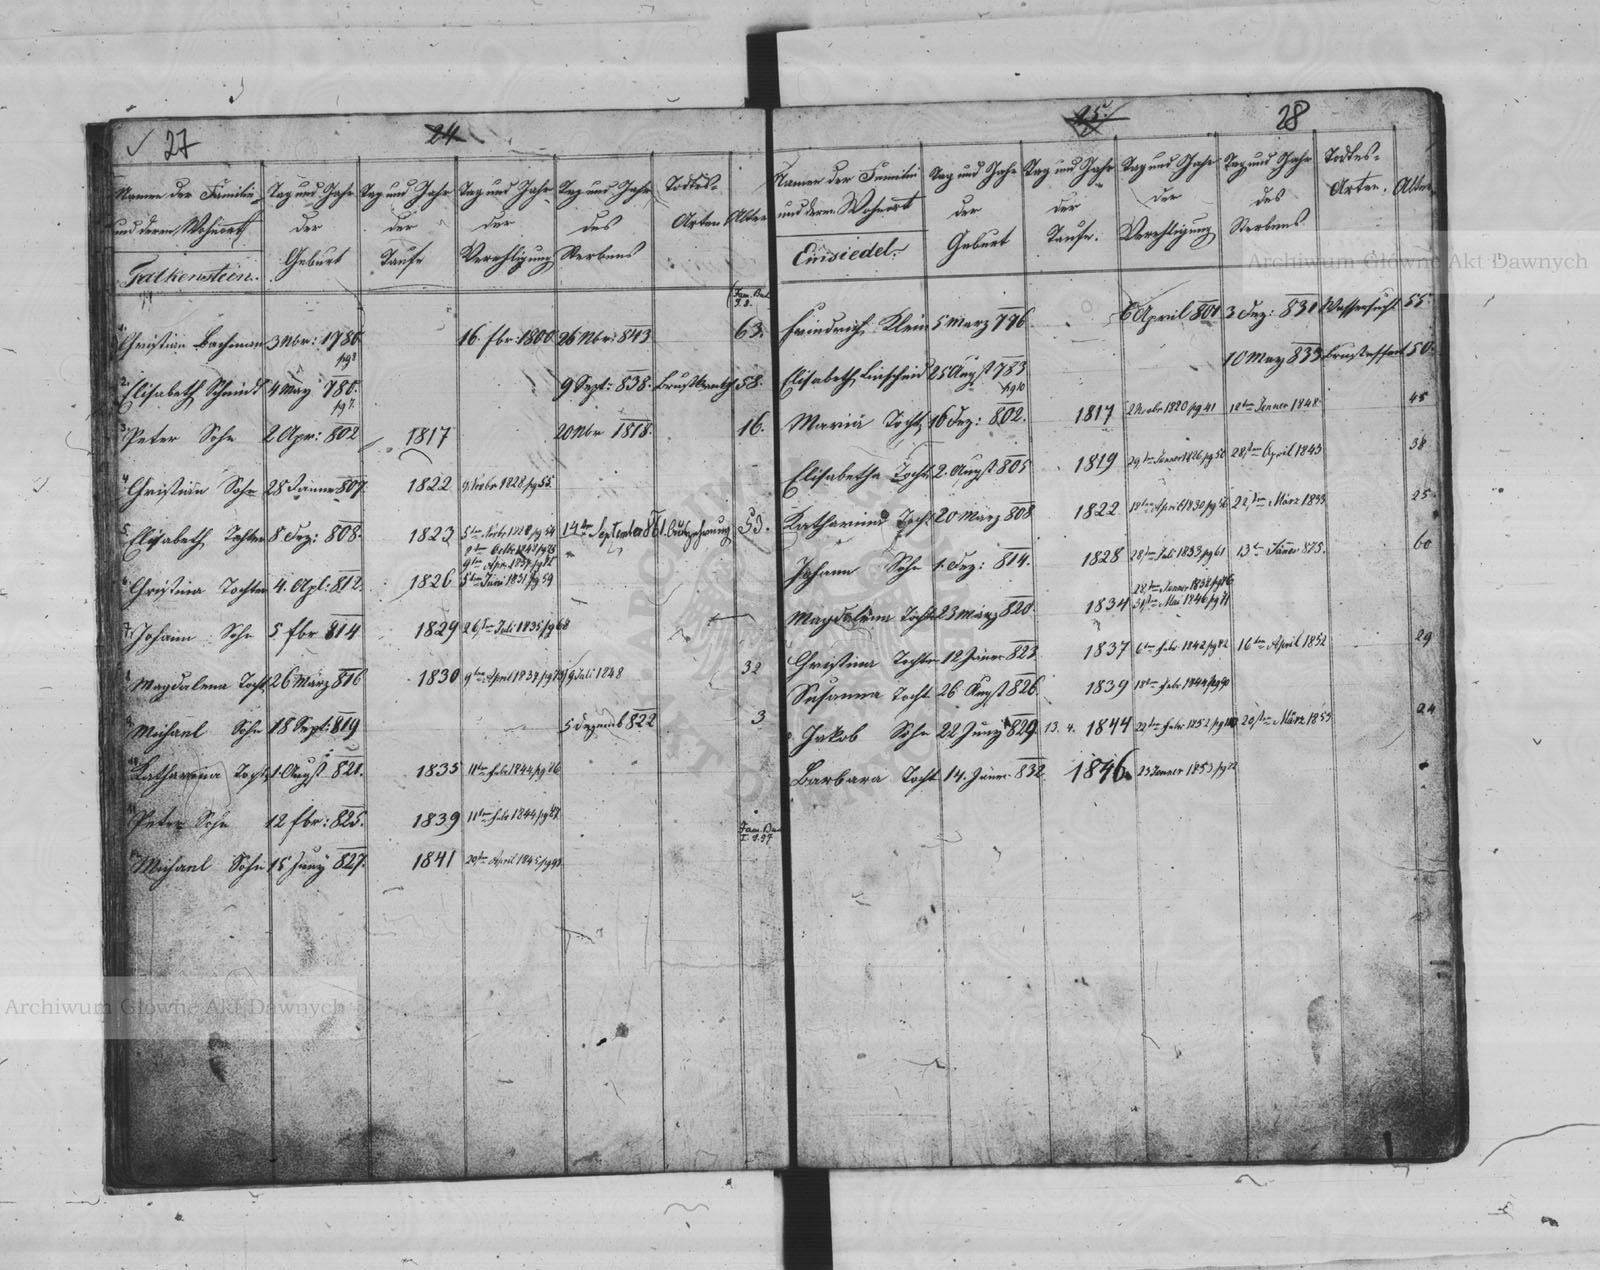 27
24
Namen der Familie und deren Wohnort
Tag und Jahr der Geburt
Tag und Jahr der Taufe
Tag und Jahr der Verehligung
Tag und Jahr des Sterbens
Todtes-Arten
Alter
Falkenstein.
Fam. Buch
Christian Bachman 3 Nbr: 1780 16. fbr: 1800 26 Nbr: 843 63.
pg 8
2. Elisabeth Schmidt 4 May 780. 9 Sept: 838. 58.
pg 7.
3. Peter Sohn 2 Apr: 802 1817 20 Nbr 1818. 16.
4. Christian Sohn 28 Jänner 807. 1822 9. Novbr 1828 pg 55
5. Elisabeth Tochter 8 Dez: 808. 1823 14ten September 861. Auszehrung 53.
6. Christina Tochter 4. Apl: 812. 1826 5ten Juni 1831 pg 59
7. Johann Sohn 5 fbr 814 1829 26ten Juli 1835 pg 68
8. Magdalena Tocht. 26 März 816 1830 9ten April 1837 19 Juli 1848 32
9. Michael Sohn 18 Sept: 819 5 Dezemb 822 3
10. Katharina Tocht. 1. Augst 821. 1835 11ten Febr 1844 pg 86
11. Peter Sohn 12 fbr: 825. 1839 11ten Febr 1844 pg 87.
Fam. Buch
I. S. 97
12. Michael Sohn 15 Juny 827. 1841 20ten April 1845
25
28
Namen der Familie und deren Wohnort
Tag und Jahr der Geburt
Tag und Jahr der Taufe.
Tag und Jahr der Verehligung
Tag und Jahr des Sterbens
Todtes-Arten.
Alter
Einsiedel.
Friedrich Klein 5 März 776 6 April 801 3 Dez: 831 Wassersucht 55.
Elisabeth 25 Augst 783 10 May 833 50.
pg 10
Maria Tocht. 16 Dez: 802. 1817 2 Novbr 1820 pg 41 12ten Jenner 1848 45
Elisabetha Tocht. 2. Augst 805 1819 29ten Jenner 1826 pg 50 28ten April 1843 38
Katharina Tocht. 20 März 808 1822 18ten April 1830 22ten März 1833 25
Johann Sohn 1. Dez: 814. 1828 28ten Juli 1833 pg 61 13ten Jänner 875. 60
28ten Jenner 1838
Magdalena Tocht. 23 März 820 1834 31ten Mai 1846
Christina Tochter 12 Jäner 823 1837 6ten Febr 1842 pg 82 16ten April 1852 29
Susanna Tocht. 26 Augst 826 1839 18ten Febr 1844 pg 90
Jakob Sohn 22 Juny 829 13. 4. 1844 22ten Febr 1852 20ten März 1853 24
Barbara Tocht. 14. Jäner 832 1846. 23 Jenner 1853
Archiwum Główne Akt Dawnych
Archiwum Główne Akt Dawnych